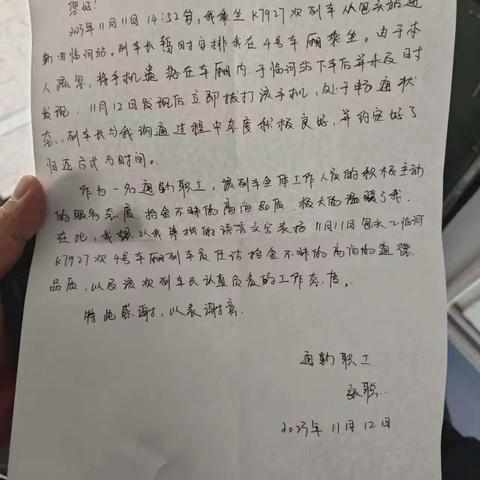 您好!
2023年11月11日14:52分,我乘坐K7927次列车从包头站通
勤回临河站。列车长临时安排我在4号车厢乘坐。由于本
人疏忽,将手机遗落在车厢内,于临河站下车后并未及时
发现。11月12日发现后立即拨打该手机,处于畅通状
态。列车长与我沟通过程中态度积极良好,并约定好了
归还方式与时间。
作为一名通勤职工,该列车全体工作人员的积极主动
的服务态度,拾金不昧的高尚品质,极大的温暖了我。
在此,我想以我质朴的语言文字表扬11月11日包头-临河
K7927次4号车厢列车员在该拾金不昧的高尚的道德
品质,以及该次列车长认真负责的工作态度。
特此感谢,以表谢意.
通勤职工
2023年11月12日